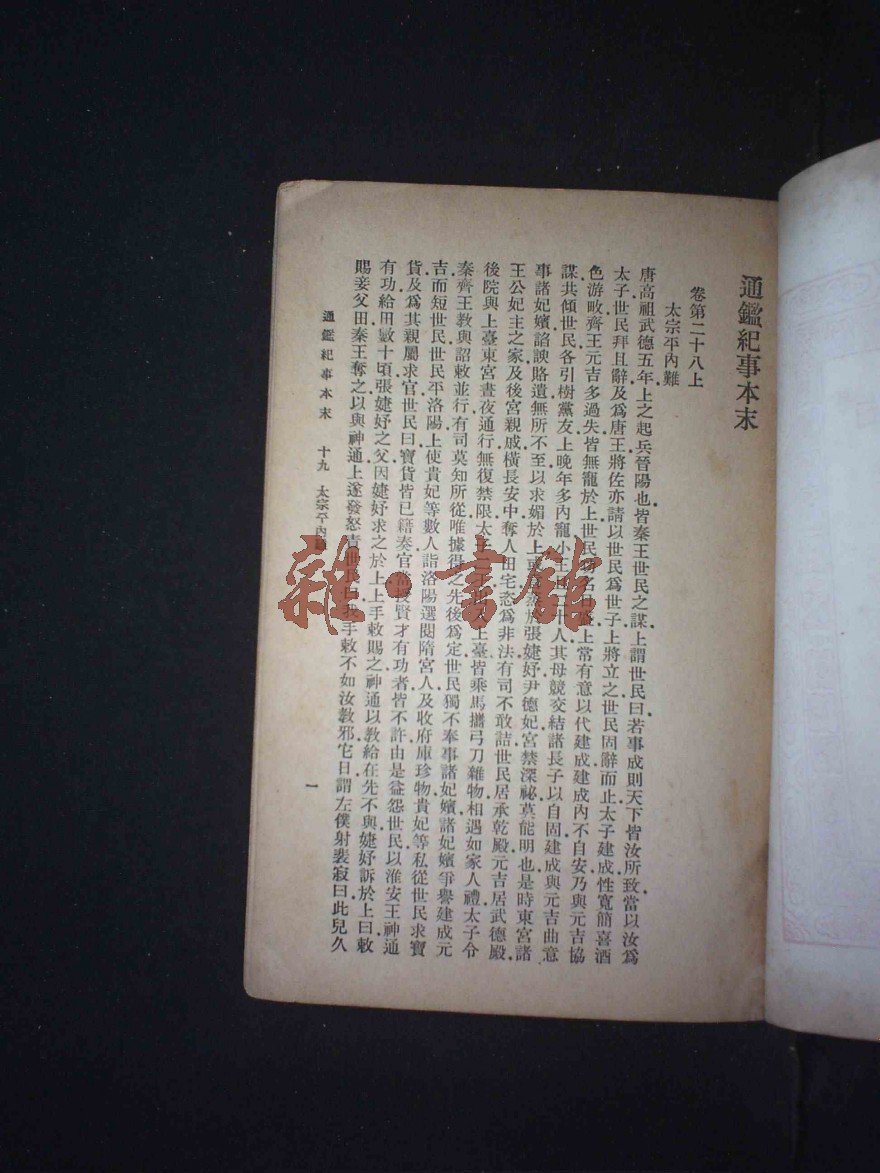 通鑑紀事本末
卷第二十八上
太宗平內難
唐高祖武德五年上之起兵晉陽也皆秦王世民之謀上謂世民曰若事成則天下皆汝所致當以汝爲
太子世民拜且辭及爲唐王將佐亦請以世民爲世子上將立之世民固辭而止太子建成性寬簡喜酒
色游畋齊王元吉多過失皆無寵於上世民功名日盛上常有意以代建成建成內不自安乃與元吉協
謀共傾世民各引樹黨友上晚年多內寵小王且二十人其母競交結諸長子以自固建成與元吉曲意
事諸妃嬪諂諛賂遺無所不至以求媚於上或言蒸於張婕妤尹德妃宮禁深祕莫能明也是時東宮諸
王公妃主之家及後宮親戚橫長安中奪人田宅恣爲非法有司不敢詰世民居承乾殿元吉居武德殿
後院與上臺東宮晝夜通行無復禁限太子二王出入上臺皆乘馬攜弓刀雜物相遇如家人禮太子令
秦齊王教與詔敕並行有司莫知所從唯據得之先後爲定世民獨不奉事諸妃嬪諸妃嬪爭譽建成元
吉而短世民世民平洛陽上使貴妃等數人詣洛陽選閱隋宮人及收府庫珍物貴妃等私從世民求寶
貨及爲其親屬求官世民曰寶貨皆已籍奏官當授賢才有功者皆不許由是益怨世民以淮安王神通
有功給田數十頃張婕妤之父因婕妤求之於上上手敕賜之神通以教給在先不與婕妤訴於上曰敕
賜妾父田秦王奪之以與神通上遂發怒責世民曰我手敕不如汝教邪它日謂左僕射裴寂曰此兒久
通鑑紀事本末 十九 太宗平內難
一
雜·書館